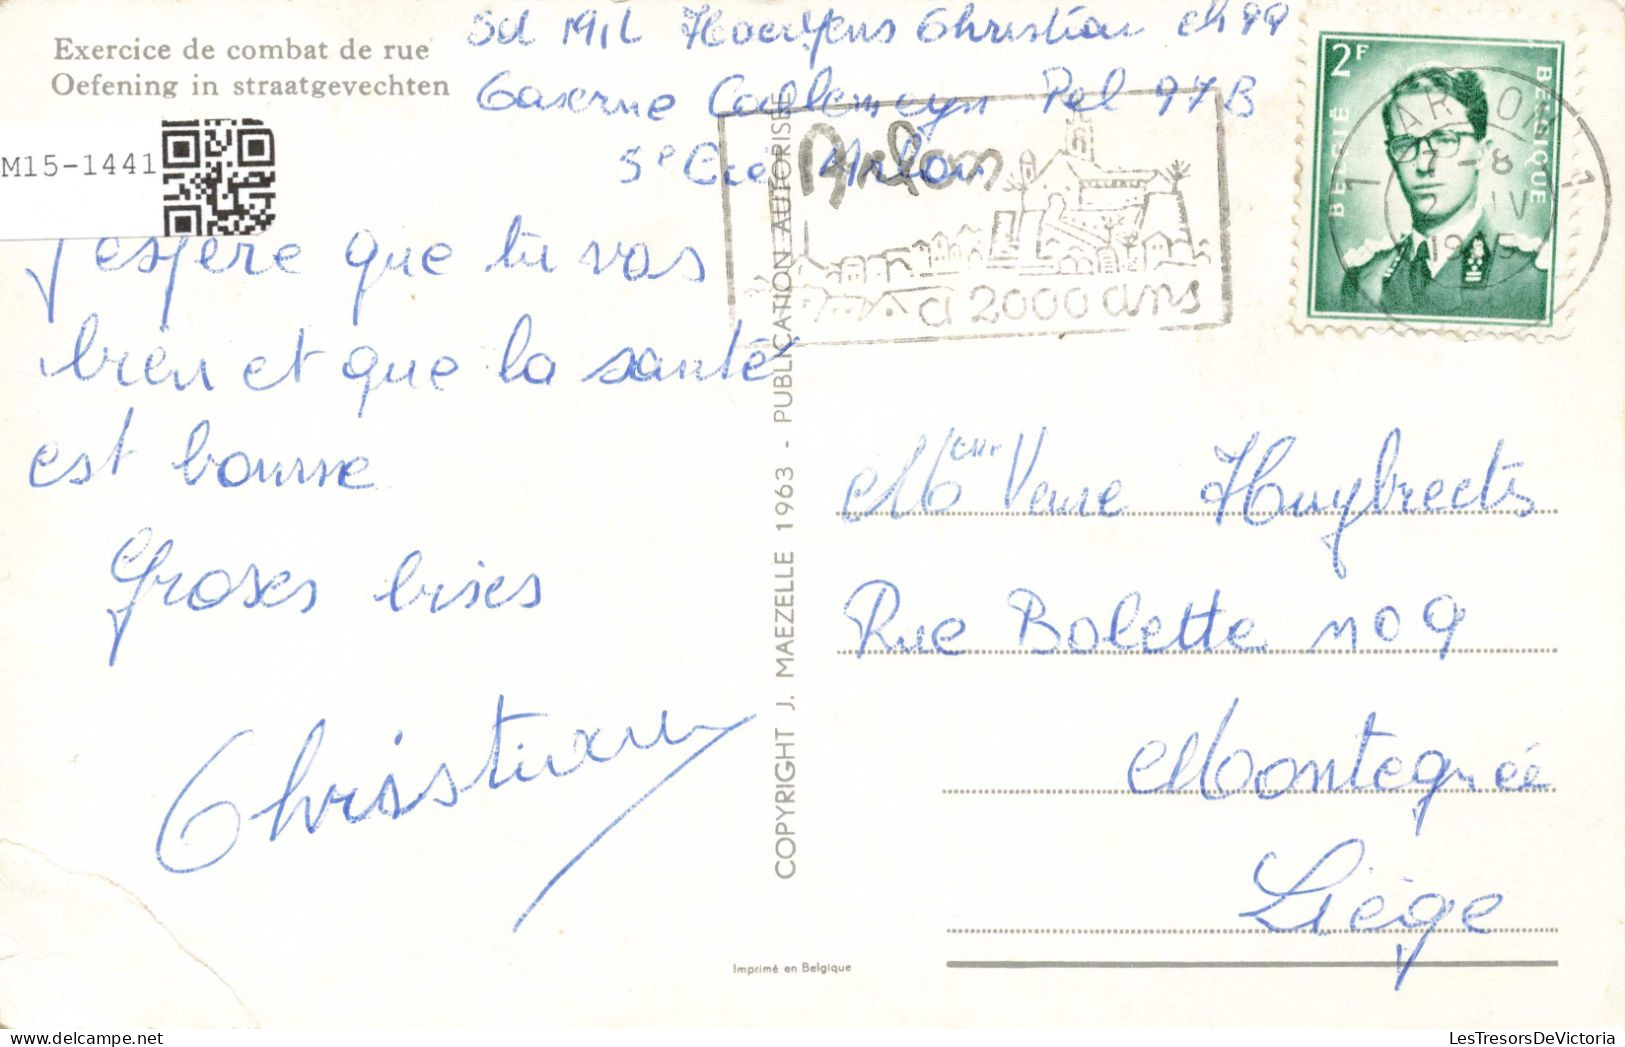 Exercice de combat de rue
Oefening in straatgevechten
Sd Mil Christian ch 99
Caserne Callemeyn Pel 97B
5e Cie Arlon
M15-1441
J'espère que tu vas
bien et que la santé
est bonne
Groses bises
Christian
COPYRIGHT J. MAEZELLE 1963 - PUBLICATION AUTORISEE
Imprimé en Belgique
Arlon
a 2000 ans
2F
BELGIË
BELGIQUE
1 ARLON 1
7-8
IV
1965
Veuve Huybrects
Rue Bolette no 9
Montegnée
Liège
LesTresorsDeVictoria